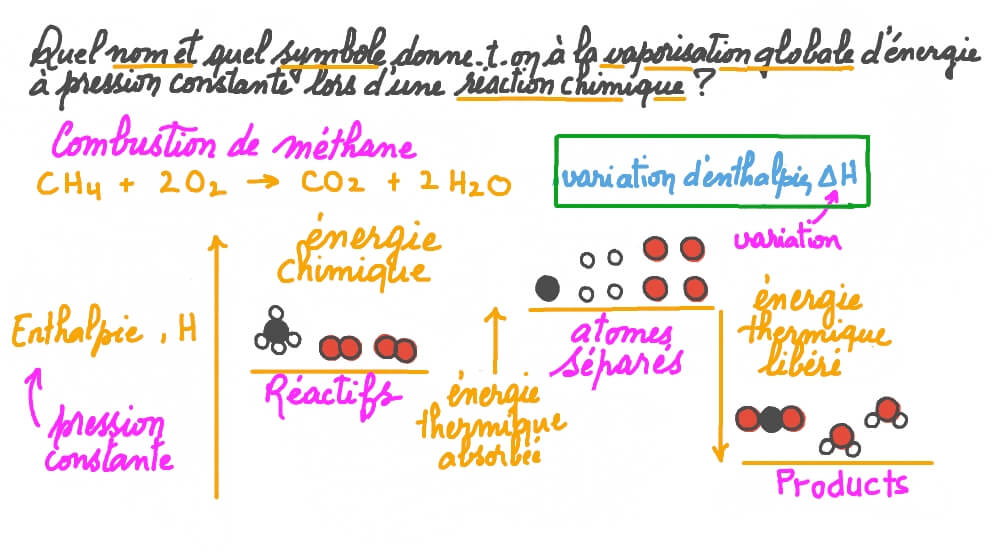 Quel nom et quel symbole donne.t.on à la vaporisation globale d'énergie
à pression constante lors d'une réaction chimique ?
Combustion de méthane
CH4 + 2O2 → CO2 + 2H2O
variation d'enthalpie, ΔH
variation
énergie
chimique
Enthalpie, H
pression
constante
Réactifs
énergie
thermique
absorbée
atomes
séparés
énergie
thermique
libéré
Products